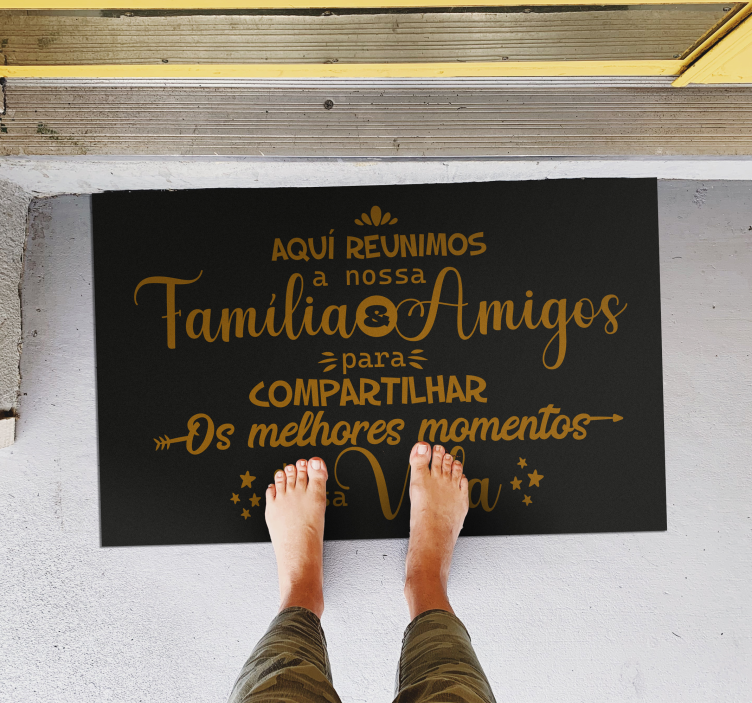 AQUÍ REUNIMOS
a nossa
Família & Amigos
para
COMPARTILHAR
Os melhores momentos